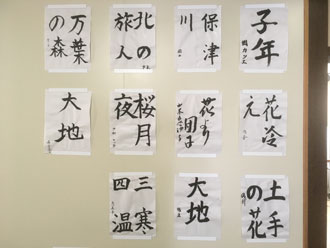 子年
保津
川
北の
旅人
万葉
の森
花冷
え
花より
団子
桜月
夜
大地
土手
の花
大地
三寒
四温